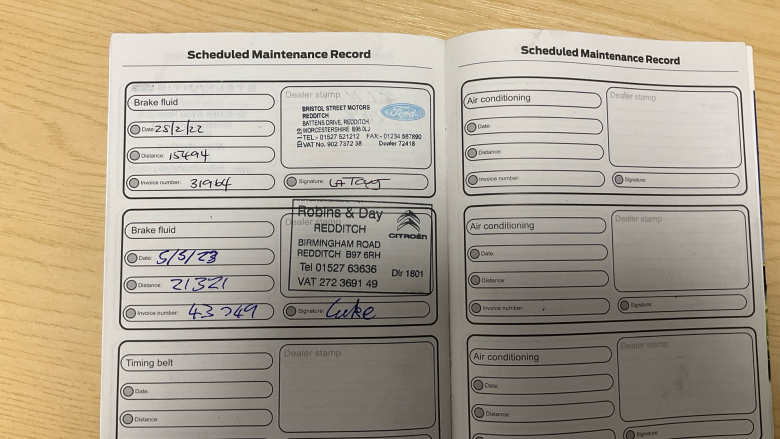 Scheduled Maintenance Record
Brake fluid
Date: 25/2/22
Distance: 15494
Invoice number: 31964
Dealer stamp
BRISTOL STREET MOTORS
REDDITCH
BATTENS DRIVE, REDDITCH
WORCESTERSHIRE B98 0LJ
TEL:- 01527 521212 FAX:- 01234 567890
VAT No. 902 7372 38 Dealer 72418
Ford
Signature:
Brake fluid
Date: 5/5/23
Distance: 21321
Invoice number: 43749
Dealer stamp
Robins & Day
REDDITCH
BIRMINGHAM ROAD
REDDITCH B97 6RH
Tel 01527 63636
Dlr 1801
VAT 272 3691 49
CITROËN
Signature: Luke
Timing belt
Date:
Distance:
Dealer stamp
Scheduled Maintenance Record
Air conditioning
Date:
Distance:
Invoice number:
Dealer stamp
Signature:
Air conditioning
Date:
Distance:
Invoice number:
Dealer stamp
Signature:
Air conditioning
Date:
Distance:
Dealer stamp
Signature: